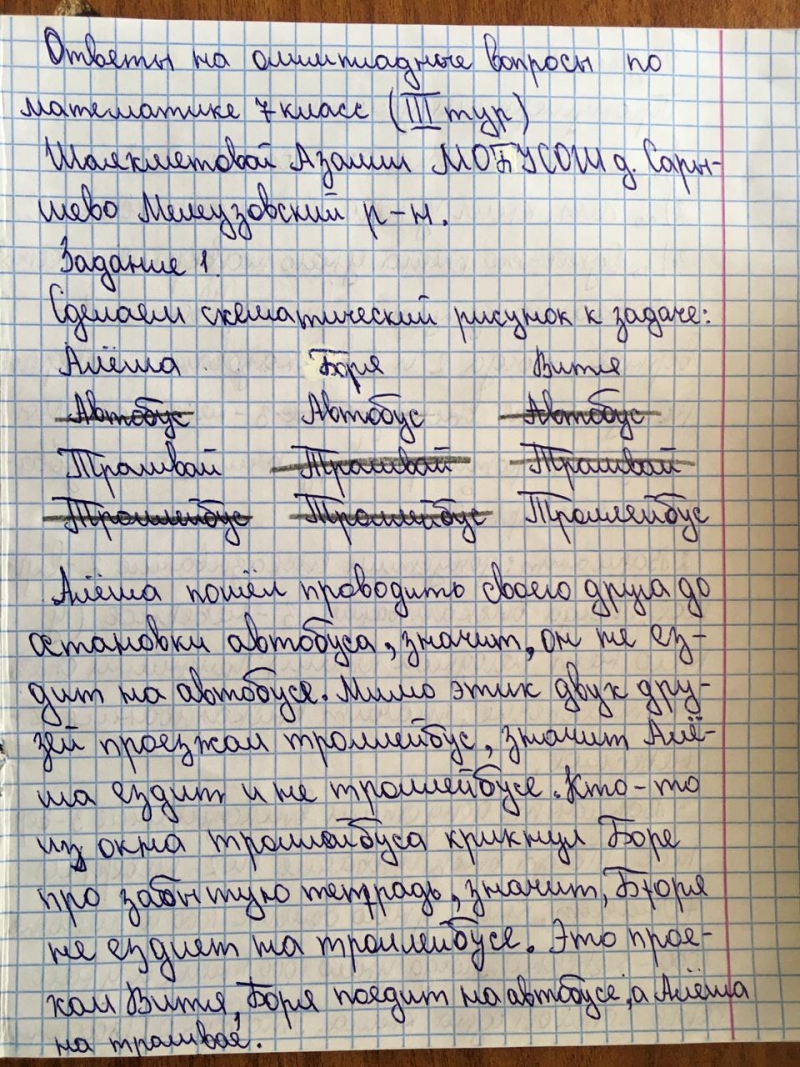 Ответы на олимпиадные вопросы по
математике 7 класс (III тур)
Шаяхметовой Азалии МОБУСОШ д. Сары-
шево Мелеузовский р-н.
Задание 1.
Сделаем схематический рисунок к задаче:
Алёша Боря Витя
Автобус Автобус Автобус
Трамвай Трамвай Трамвай
Троллейбус Троллейбус Троллейбус
Алёша пошёл проводить своего друга до
остановки автобуса, значит, он не ез-
дит на автобусе. Мимо этих двух дру-
зей проезжал троллейбус, значит Алё-
ша ездит и не троллейбусе. Кто-то
из окна троллейбуса крикнул Боре
про забытую тетрадь, значит, Боря
не ездиет на троллейбусе. Это прое-
хал Витя, Боря поедит на автбоусе, а Алёша
на трамвае.